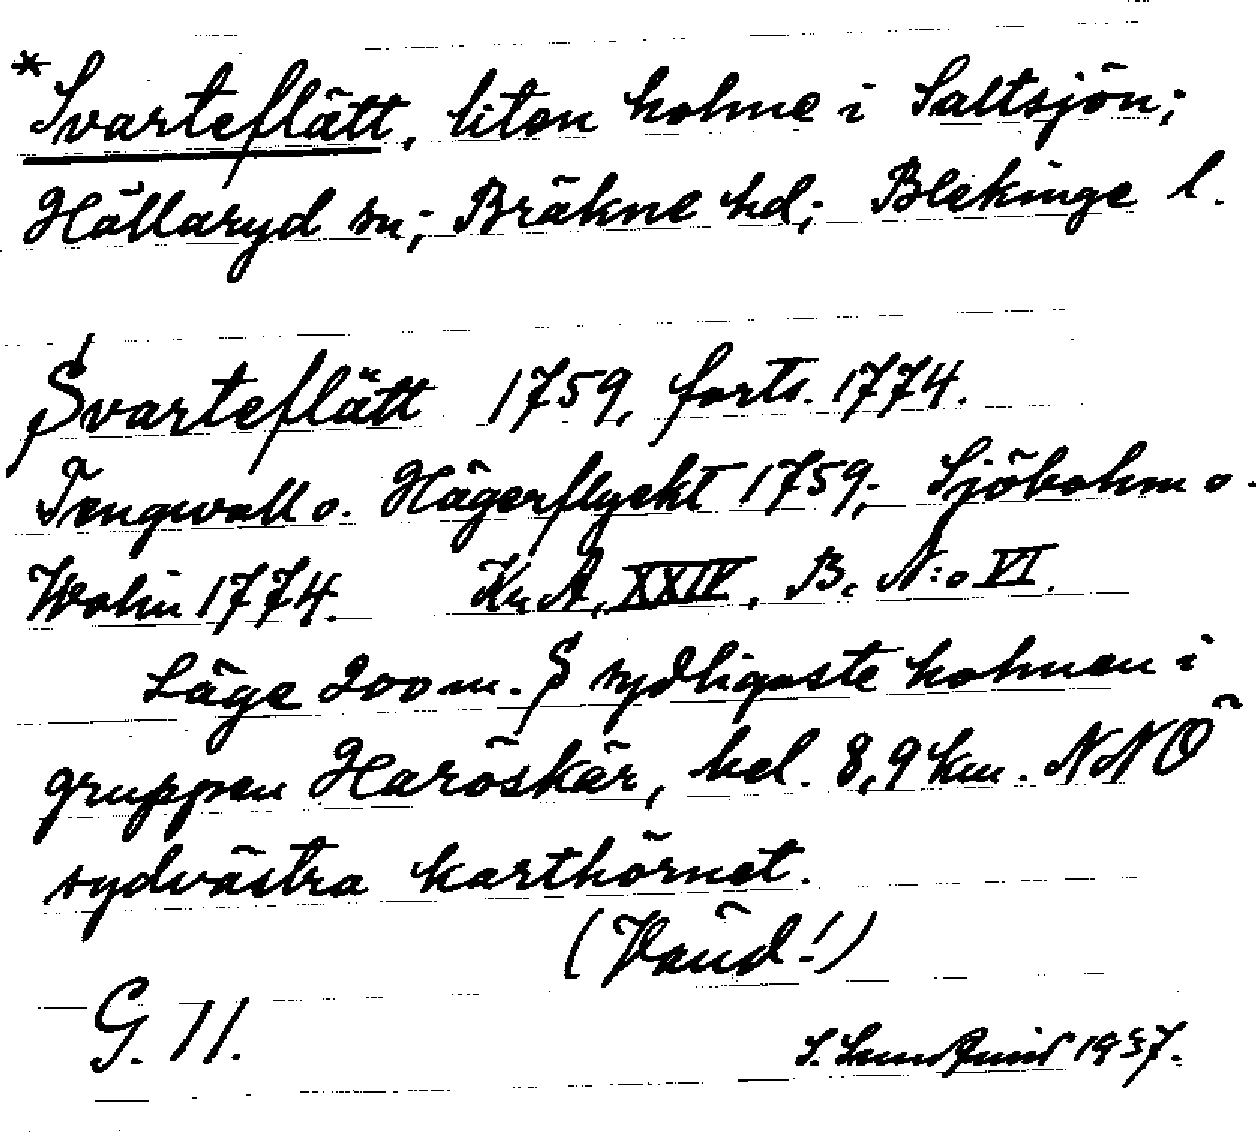 *Svarteflätt, liten holme i Saltsjön;
Hällaryd sn; Bräkne hd; Blekinge l.
Svarteflätt 1759, forts. 1774.
Tengwall o. Hägerflyckt 1759; Sjöbohm o.
Wolin 1774. Kr.A, XXIV, B. N:o VI.
Läge 200 m. S sydligaste holmen i
gruppen Haröskär, bel. 8,9 km. NNÖ
sydvästra karthörnet.
(Vänd!)
G. 11.
S. 1937.